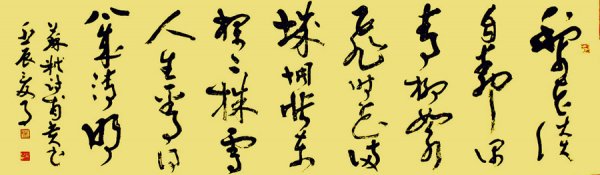 梨花淡
白柳深
青柳絮
飞时花满
城惆怅东
栏二株雪
人生看得
几清明
苏轼诗 书
壬辰夏月